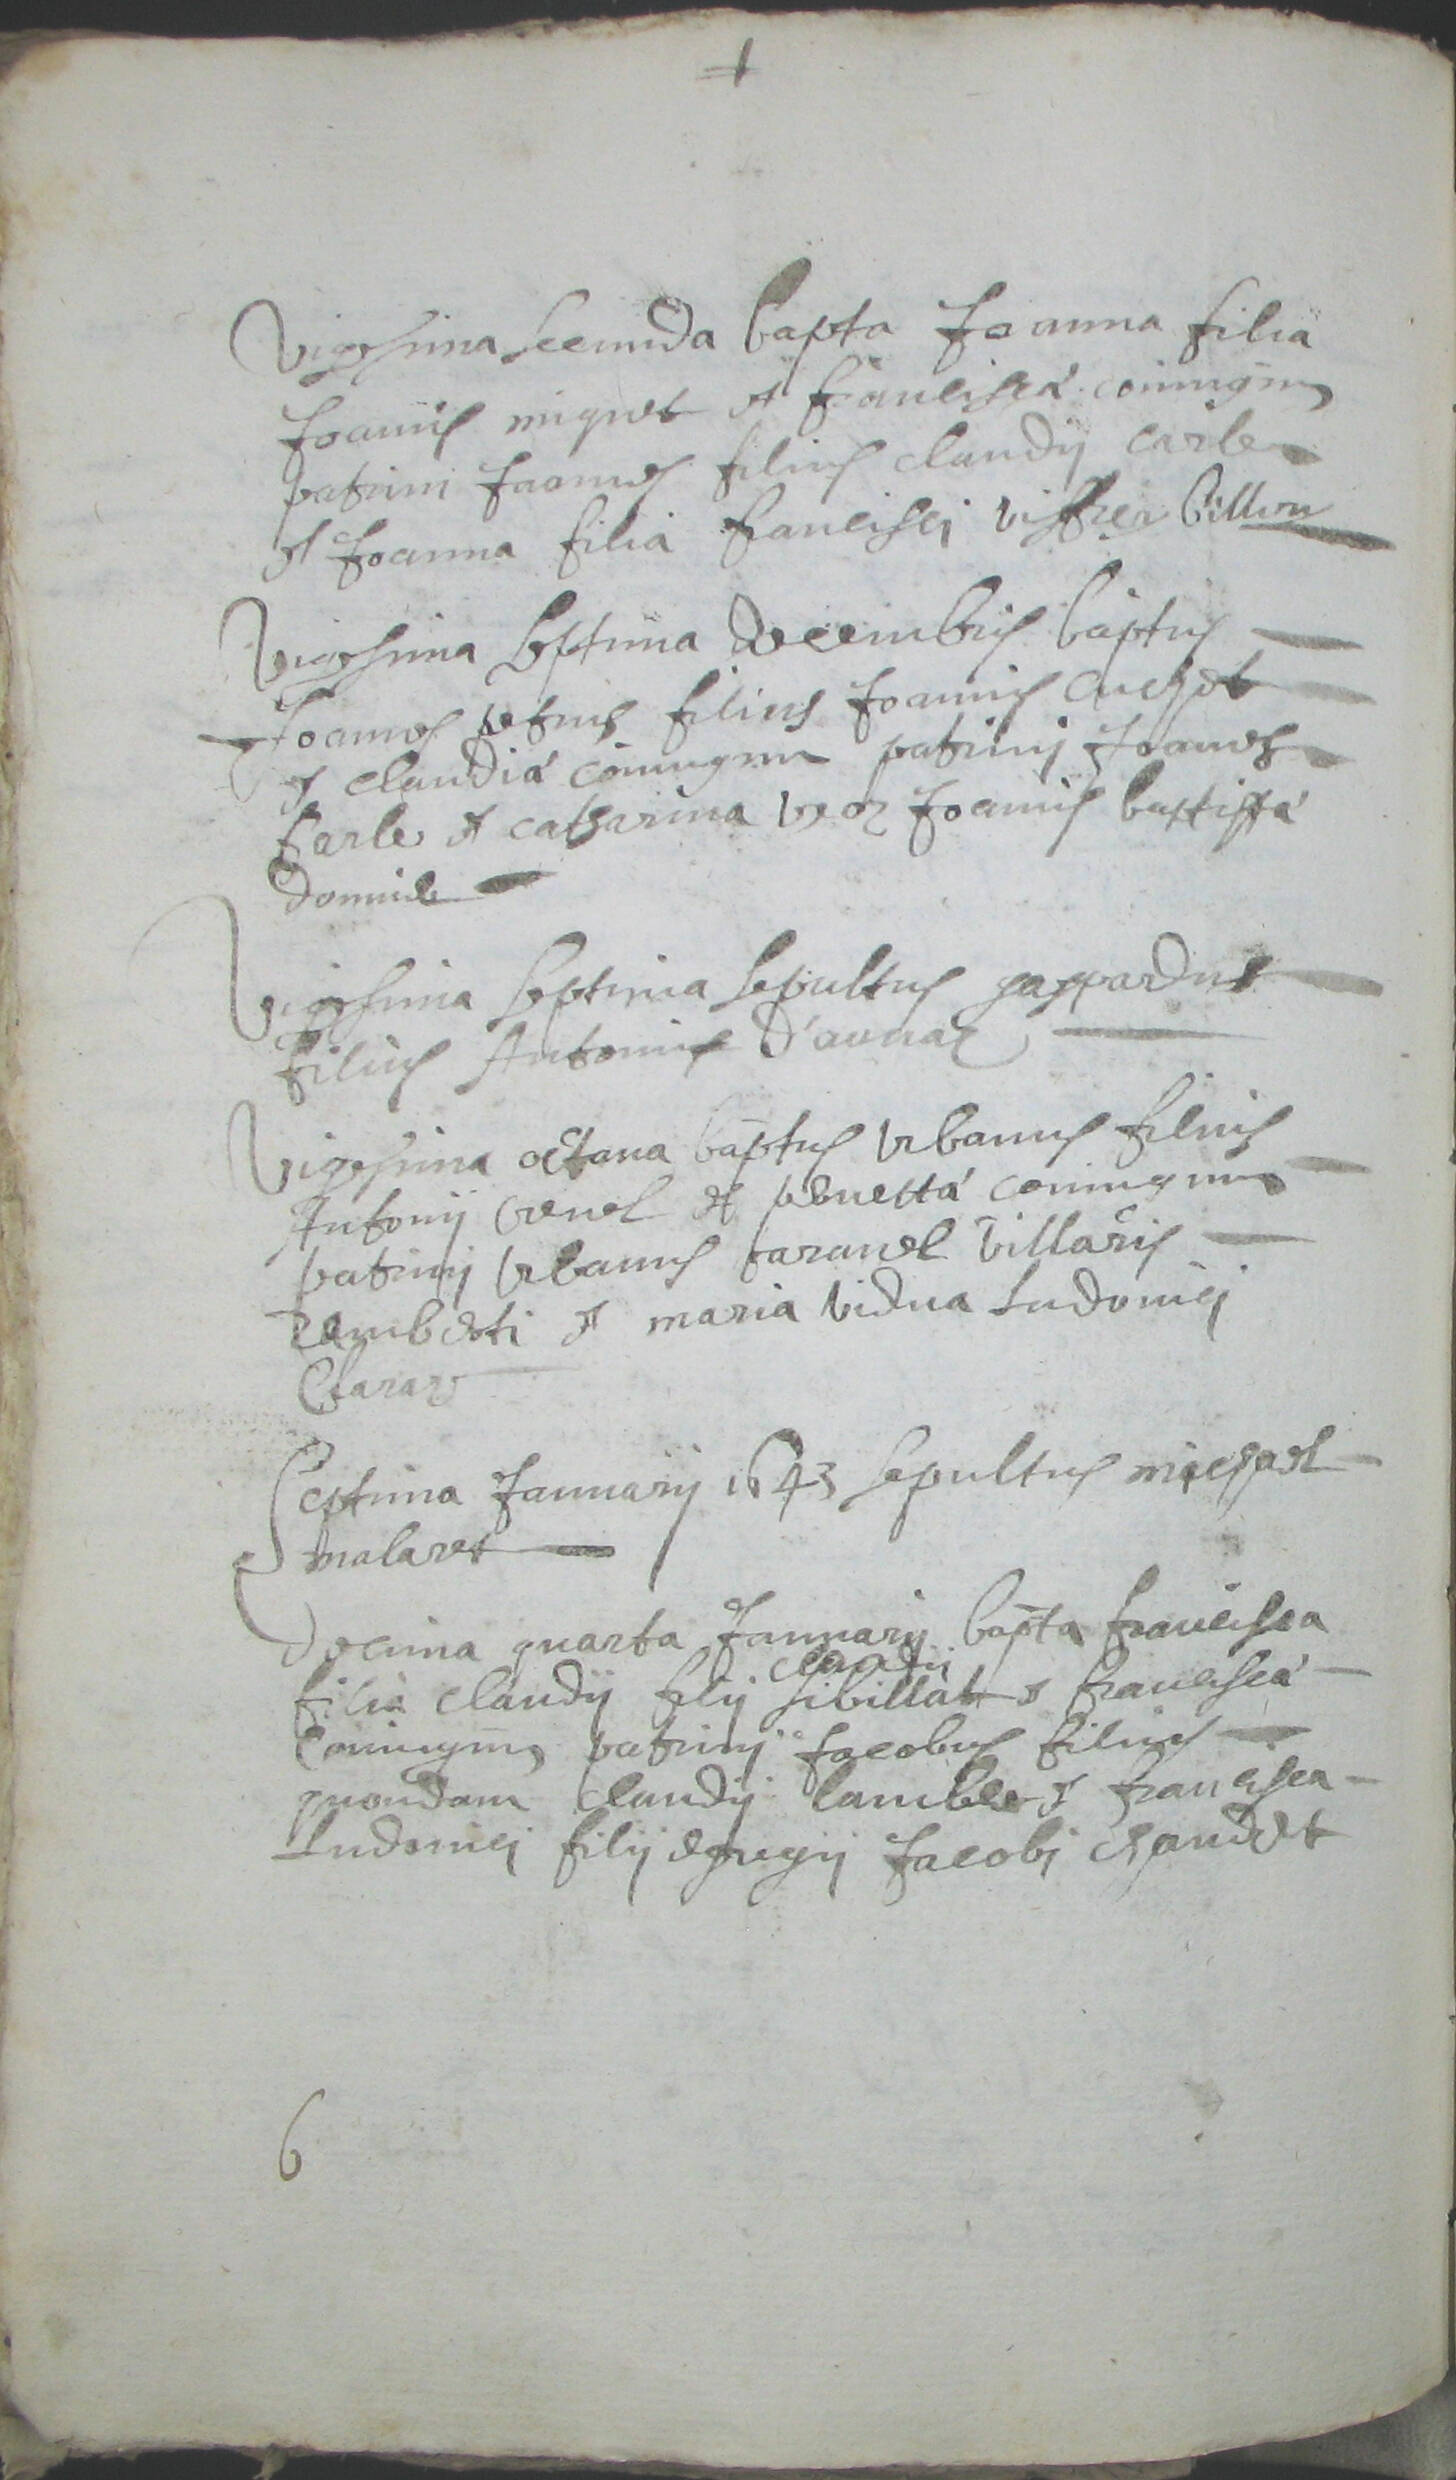 +
Vigesima secunda bapta Joanna filia
Joannis miquet et francisca coniugum
patrini Joannes filius claudij carle
et Joanna filia francisci billion
Vigesima septima decembris baptus
Joannes petrus filius Joannis cuchet
et claudia coniugum patrinj Joannes
carle et catharina vxor Joannis baptista
domine
Vigesima septima sepultus gaspardus
filius Antonij d'aonaz
Vigesima octaua baptus vrbanus filius
Antonij venel et penetta coniugum
patrinj vrbanus villaris
Ramberti et maria vidua Ludouicj
Septima Januarij 1643 sepultus michael
malaret
decima quarta Januarij bapta francisca
claudij
filia claudij filij sibillat et francisca
coniugum patrinj Jacobus filius
quondam claudij lamble et francisca
Ludouicj filij egregij Jacobj chandet
6